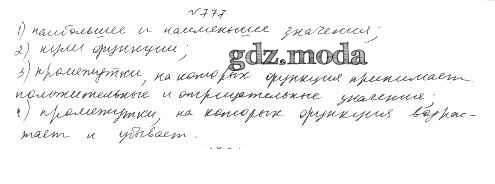 №777
1) наибольшее и наименьшее значения;
2) нули функции;
gdz.moda
3) промежутки, на которых функция принимает
положительные и отрицательные значения;
4) промежутки, на которых функция возрас-
тает и убывает.